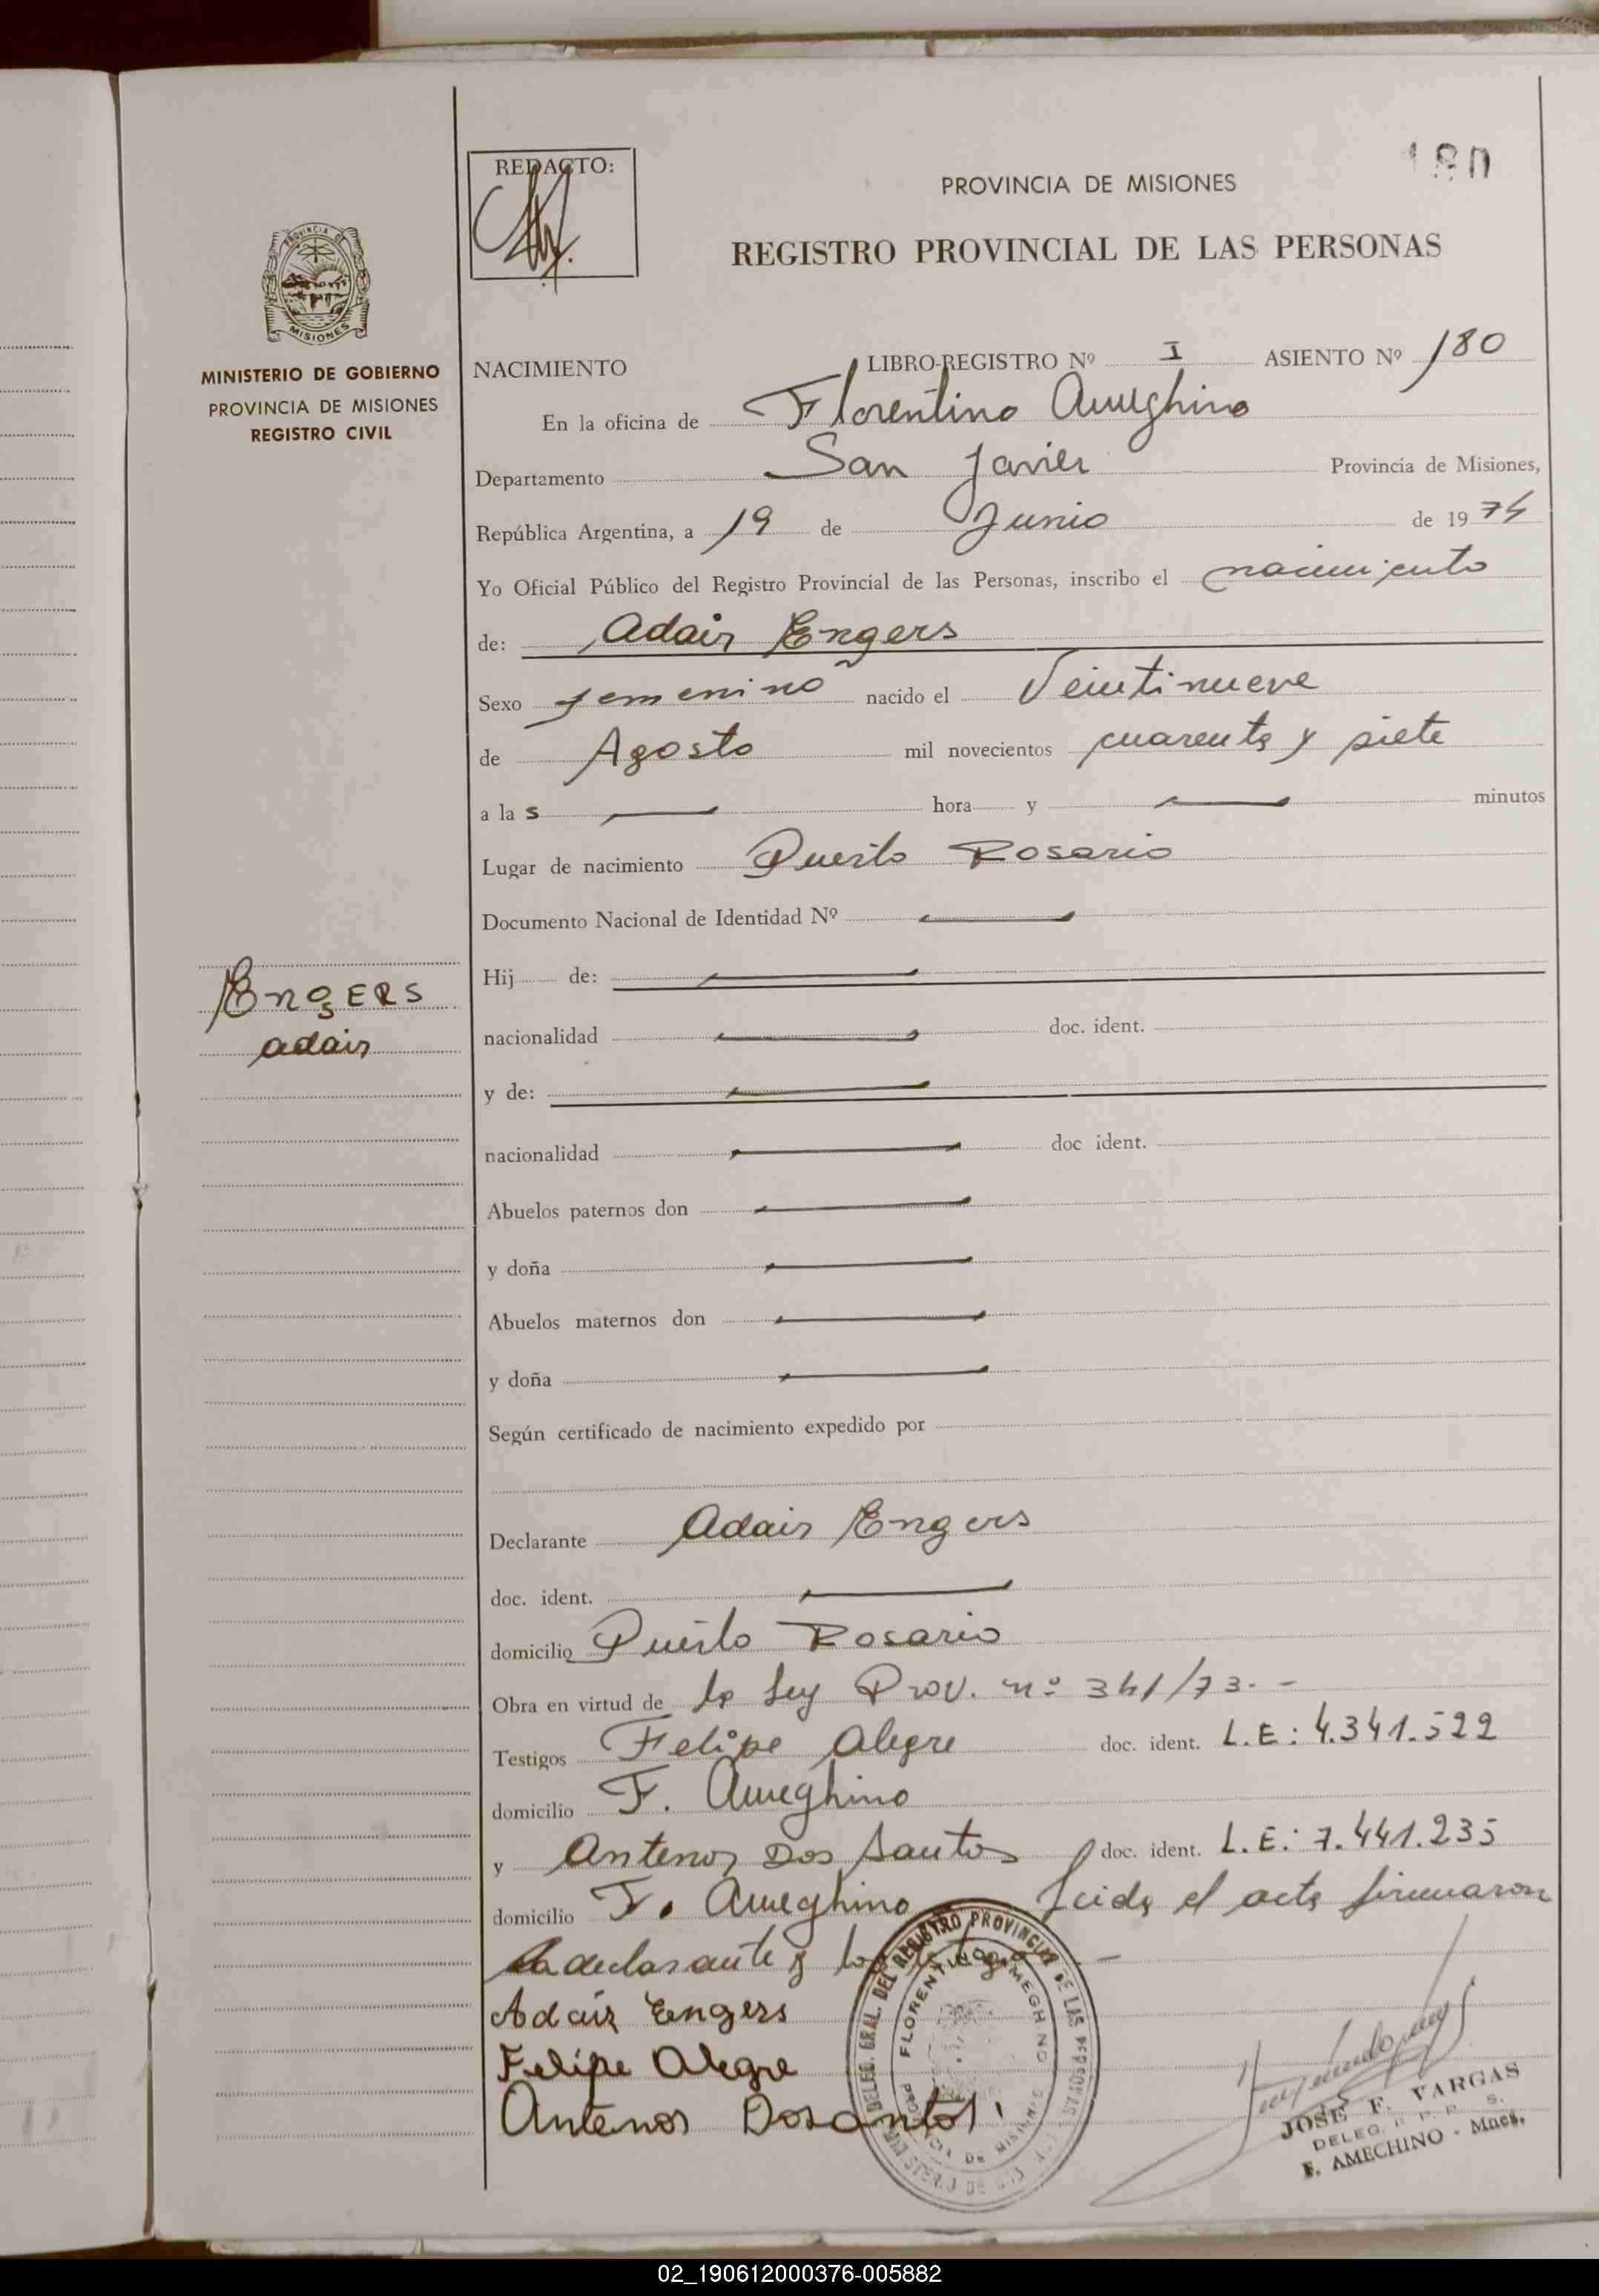 180
REDACTO:
PROVINCIA DE MISIONES
REGISTRO PROVINCIAL DE LAS PERSONAS
PROVINCIA DE
MISIONES
MINISTERIO DE GOBIERNO
PROVINCIA DE MISIONES
REGISTRO CIVIL
NACIMIENTO LIBRO-REGISTRO Nº I ASIENTO Nº 180
En la oficina de Florentino Ameghino
Departamento San Javier Provincia de Misiones,
República Argentina, a 19 de Junio de 1974
Yo Oficial Público del Registro Provincial de las Personas, inscribo el nacimiento
de: Adair Engers
Sexo femenino nacido el Veintinueve
de Agosto mil novecientos cuarenta y siete
a la s hora y minutos
Lugar de nacimiento Puerto Rosario
Documento Nacional de Identidad Nº
Hij de:
nacionalidad doc. ident.
y de:
nacionalidad doc ident.
Abuelos paternos don
y doña
Abuelos maternos don
y doña
Según certificado de nacimiento expedido por
Engers
adair
Declarante Adair Engers
doc. ident.
domicilio Puerto Rosario
Obra en virtud de la Ley Prov. nº 341/73.-
Testigos Felipe Alegre doc. ident. L.E: 4.341.522
domicilio F. Ameghino
y Antenor Dos Santos doc. ident. L.E: 7.441.235
domicilio F. Ameghino Leida el acta firmaron
La declarante y los testigos.-
Adair Engers
Felipe Alegre
Antenor Dosantos
DELEG. GRAL. DEL REGISTRO PROVINCIAL DE LAS PERSONAS
FLORENTINO AMEGHINO
PROVINCIA DE MISIONES
JOSE F. VARGAS
DELEG. R. P. P. S.
F. AMECHINO - Mnes.
02_190612000376-005882